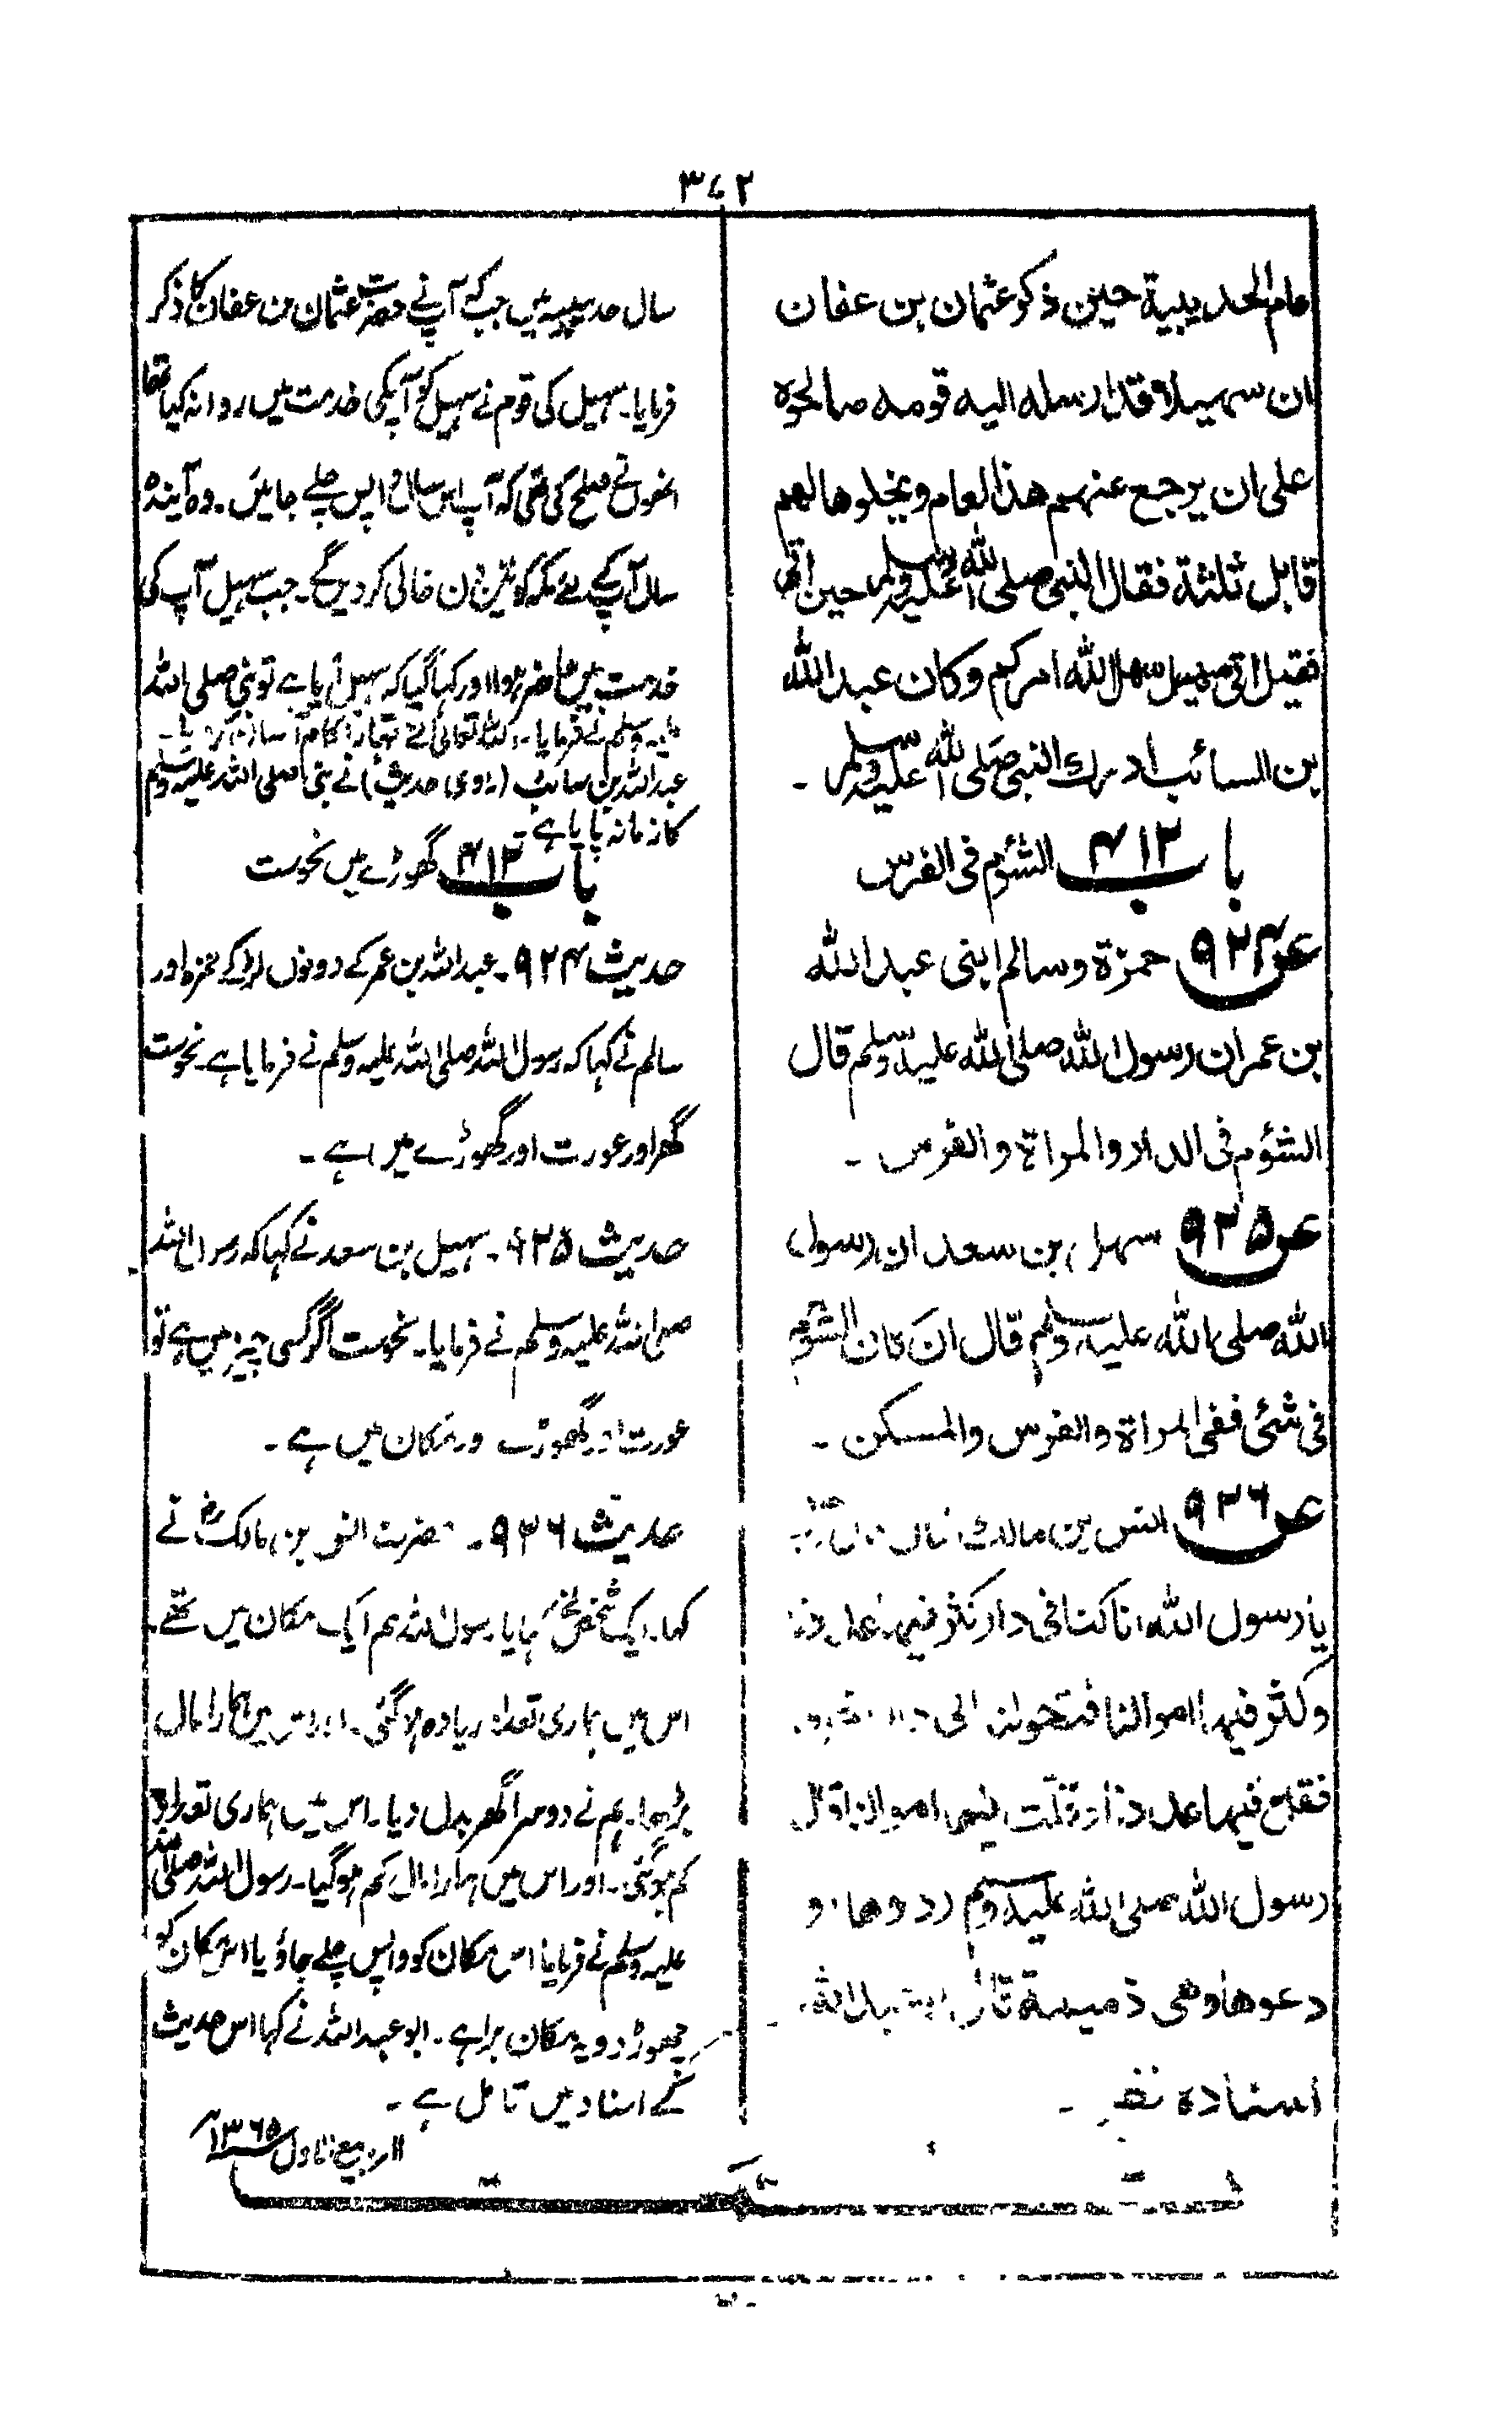 ۳۷۲
عام الحديبية حين ذكر عثمان بن عفان
ان سهيلا قد ارسله اليه قومه صالحوه
على ان يرجع عنهم هذا العام ويخلوها لهم
قابل ثلثة فقال النبي صلى الله عليه وسلم حين اتى
فقيل اتى سهيل سهل الله امركم وكان عبد الله
بن السائب ادرك النبي صلى الله عليه وسلم ۔
باب ۴۱۲ الشؤم في الفرس
عن ۹۲۴ حمزة وسالم ابنى عبد الله
بن عمر ان رسول الله صلى الله عليه وسلم قال
الشؤم في الدار والمراة والفرس ۔
عن ۹۲۵ سهل بن سعد ان رسول
الله صلى الله عليه وسلم قال ان كان الشؤم
في شئ ففى المراة والفرس والمسكن ۔
عن ۹۲۶ انس بن مالك قال قال
يا رسول الله انا كنا في دار كثر فيها عددنا
وكثر فيها اموالنا فتحولنا الى
فقل فيها عددنا وقلت فيها اموالنا قال
رسول الله صلى الله عليه وسلم ردوها او
دعوها وهى ذميمة قال ابو عبد الله
اسناده نظر ۔
سال حدیبیہ میں جب کہ آپ نے حضرت عثمان بن عفان کا ذکر
فرمایا۔ سہیل کی قوم نے سہیل کو آپکی خدمت میں روانہ کیا تھا
انھوں نے صلح کی تھی کہ آپ اس سال واپس چلے جائیں۔ وہ آیندہ
سال آپ کے لئے مکہ کو تین دن خالی کر دیں گے۔ جب سہیل آپ کی
خدمت میں حاضر ہوا اور کہا گیا کہ سہیل آیا ہے تو نبی صلی اللہ
علیہ وسلم نے فرمایا۔ اللہ تعالیٰ نے تمہارا کام آسان کر دیا۔
عبداللہ بن سائب (راوی حدیث) نے نبی صلی اللہ علیہ وسلم
کا زمانہ پایا ہے۔
باب ۴۱۲ گھوڑے میں نحوست
حدیث ۹۲۴۔ عبداللہ بن عمر کے دونوں لڑکے حمزہ اور
سالم نے کہا کہ رسول اللہ صلی اللہ علیہ وسلم نے فرمایا ہے نحوست
گھر اور عورت اور گھوڑے میں ہے ۔
حدیث ۹۲۵۔ سہیل بن سعد نے کہا کہ رسول اللہ
صلی اللہ علیہ وسلم نے فرمایا۔ نحوست اگر کسی چیز میں ہے تو
عورت اور گھوڑے اور مکان میں ہے ۔
حدیث ۹۲۶۔ حضرت انس بن مالکؓ نے
کہا۔ ایک شخص نے کہا یا رسول اللہ ہم ایک مکان میں تھے۔
اس میں ہماری تعداد زیادہ ہو گئی۔ اور اس میں ہمارا مال
بڑھا۔ ہم نے دوسرا گھر بدل دیا۔ اس میں ہماری تعداد
کم ہو گئی۔ اور اس میں ہمارا مال کم ہو گیا۔ رسول اللہ صلی اللہ
علیہ وسلم نے فرمایا اس مکان کو واپس چلے جاؤ یا اس مکان کو
چھوڑ دو یہ مکان برا ہے۔ ابو عبداللہ نے کہا اس حدیث
کے اسناد میں تامل ہے ۔
۱۱ ربیع الاول ۱۳۶۵ھ